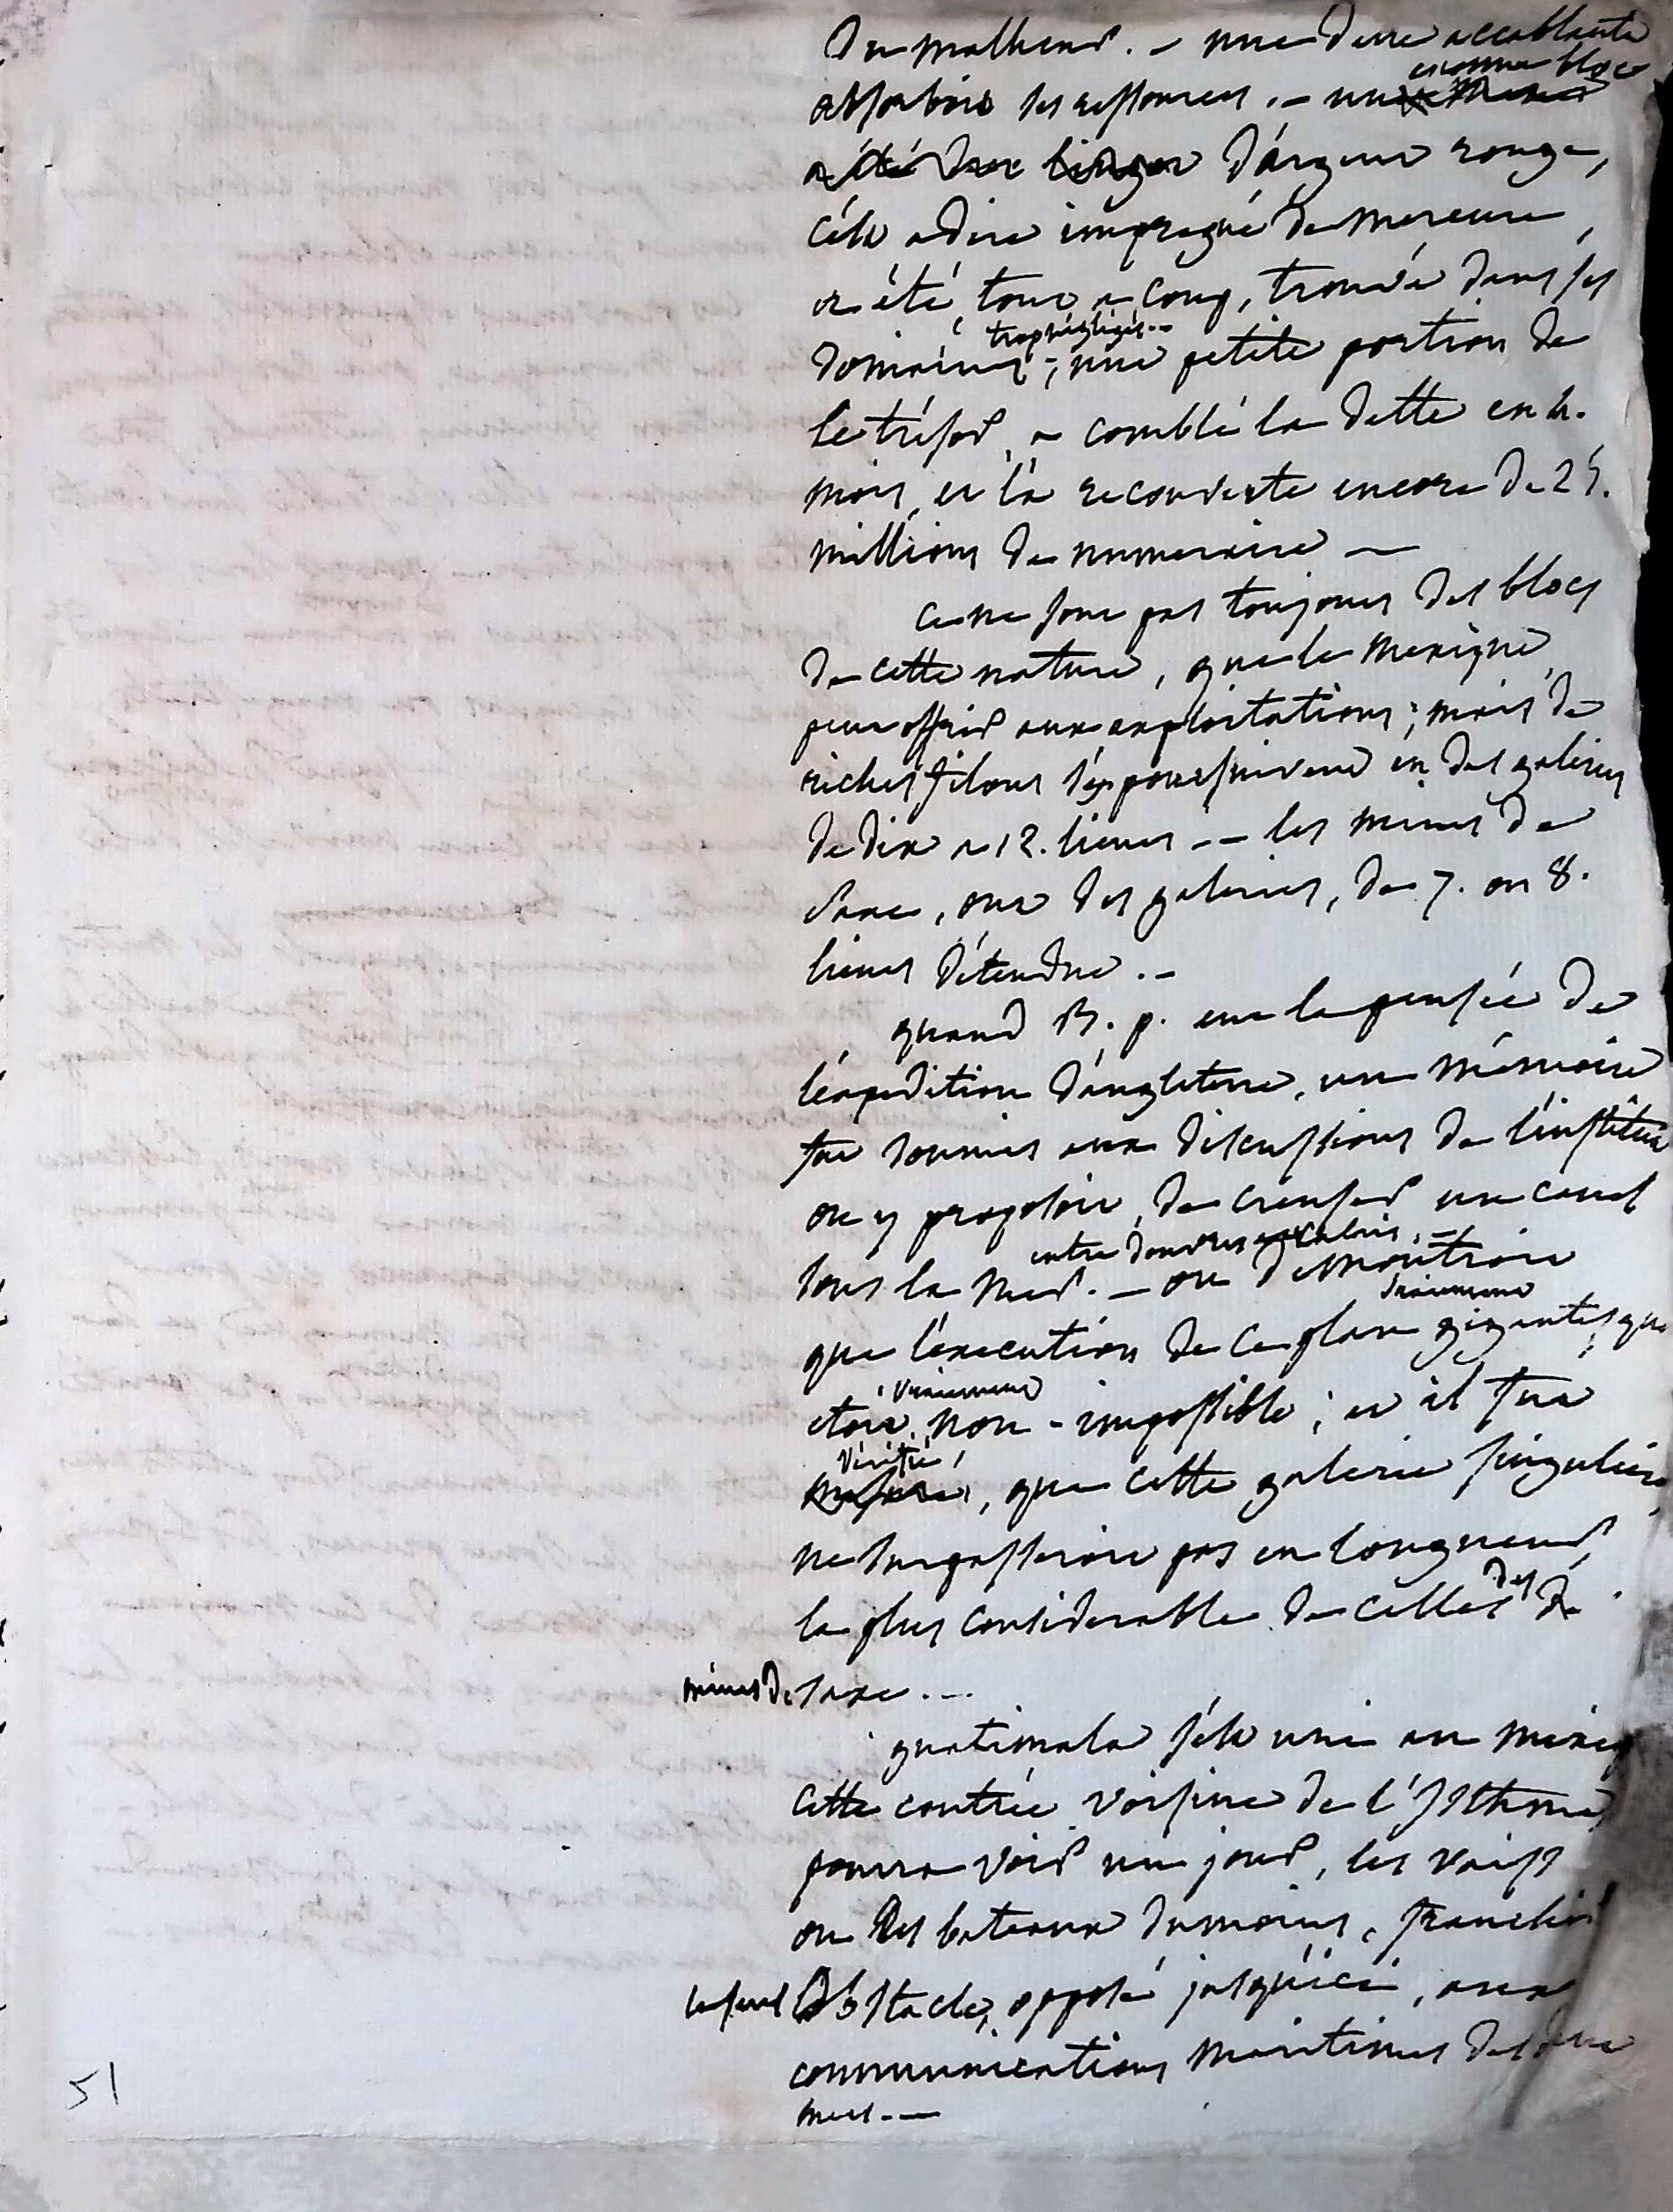 du malheur. – une dette accablante
enorme bloc
absorboit ses ressources. – un
a été d'argent rouge,
c'est a dire impregné de mercure,
a été, tout a coup, trouvé dans ses
trop négligés..
domaines ; une petite portion de
ce trésor, a comblé la dette en 4.
mois, et l'a recouverte encore de 25.
millions de numeraire –
ce ne sont pas toujours des blocs
de cette nature, que le mexique
peut offrir aux exploitations ; mais de
riches filons s'y poursuivent en des galeries
de dix a 12. lieues -- les mines de
Saxe, ont des galeries, de 7. ou 8.
lieues d'étendue. –
quand B. p. eut la pensée de
l'expedition d'angleterre, un mémoire
fut soumis aux discussions de l'institut
on y proposoit, de creuser un canal
entre Douvres et Calais. –
sous la mer. – on demontroit
vraiement
que l'execution de ce plan gigantesque
vraiement
etoit non-impossible ; et il fut
vérifié,
que cette galerie singuliere
ne surpasseroit pas en longueur
des
la plus considerable de celles de
mines de Saxe. ...
guatimala s'est uni au mexiq
cette contrée voisine de l'Isthme
pourra voir un jour, les vaiss
ou des bateaux du moins, franchir
le seul obstacle, opposé jusqu'ici, aux
communications maritimes des deux
mers. –
51